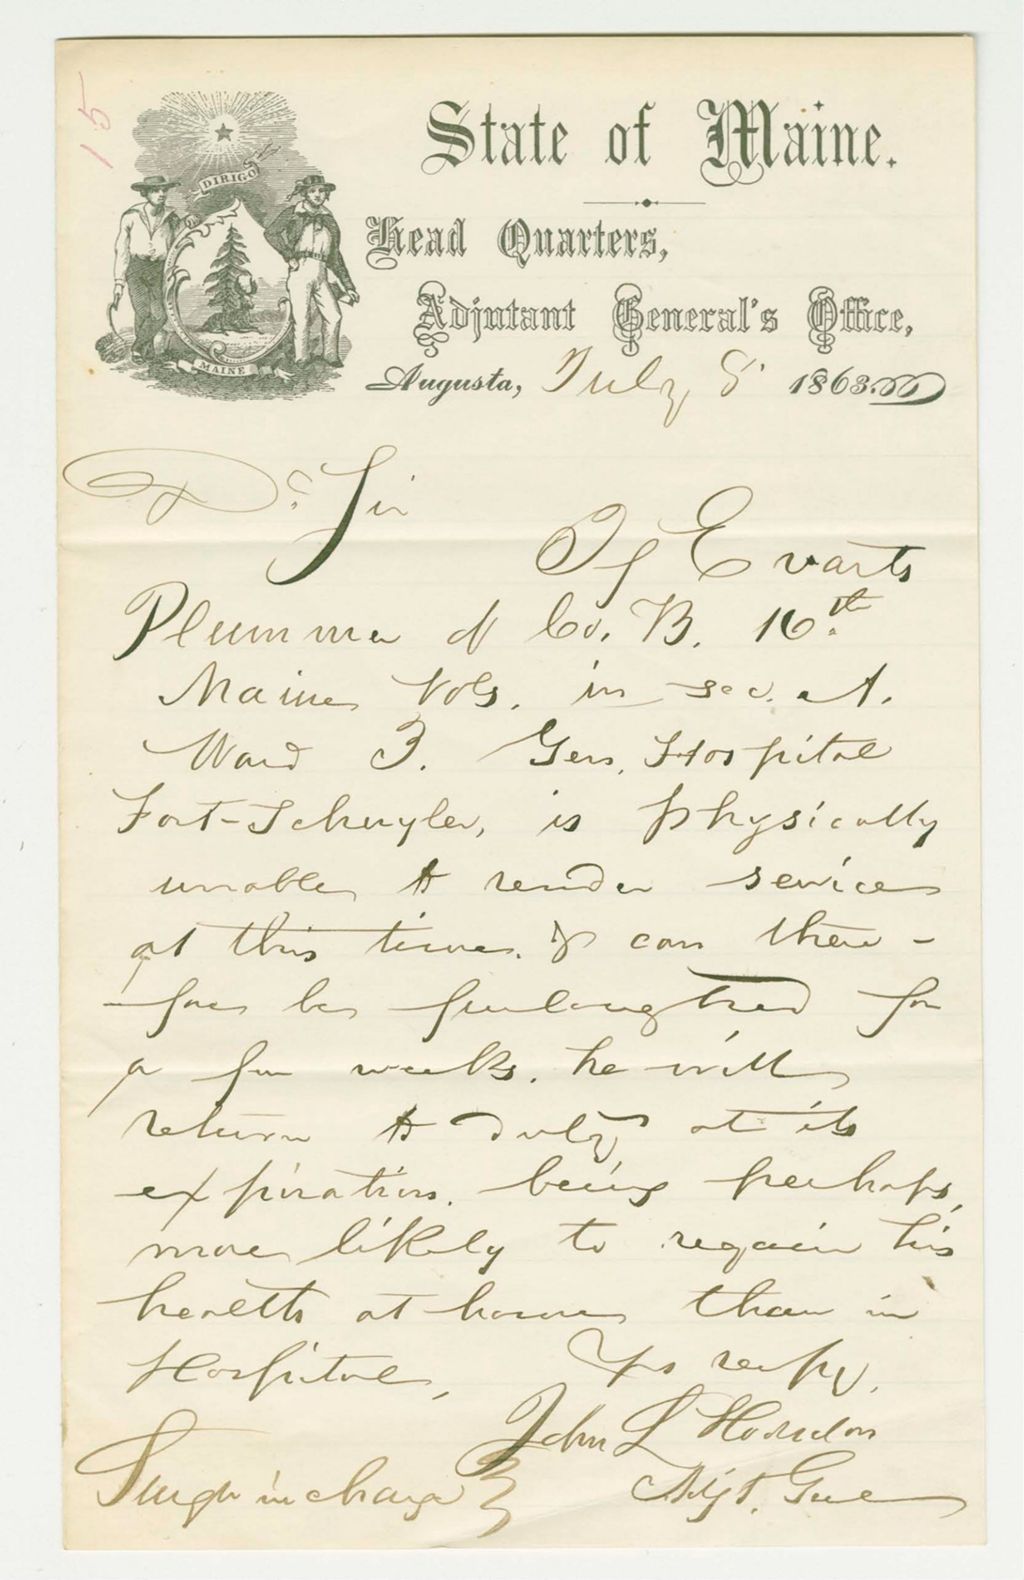 15
DIRIGO
MAINE
State of Maine.
Head Quarters,
Adjutant General's Office,
Augusta, July 8' 1863.
Dr. Sir
If Evarts
Plummer of Co. B. 16th
Maine Vols. in sec. A.
Ward 3. Gen. Hospital
Fort-Schuyler, is physically
unable to render service
at this time. & can there-
-fore be furloughed for
a few weeks. he will
return to duty at its
expiration. being perhaps,
more likely to regain his
health at home than in
Hospital,
Yrs respy.
John L Hodsdon
Surgn in charge
Adjt. Genl